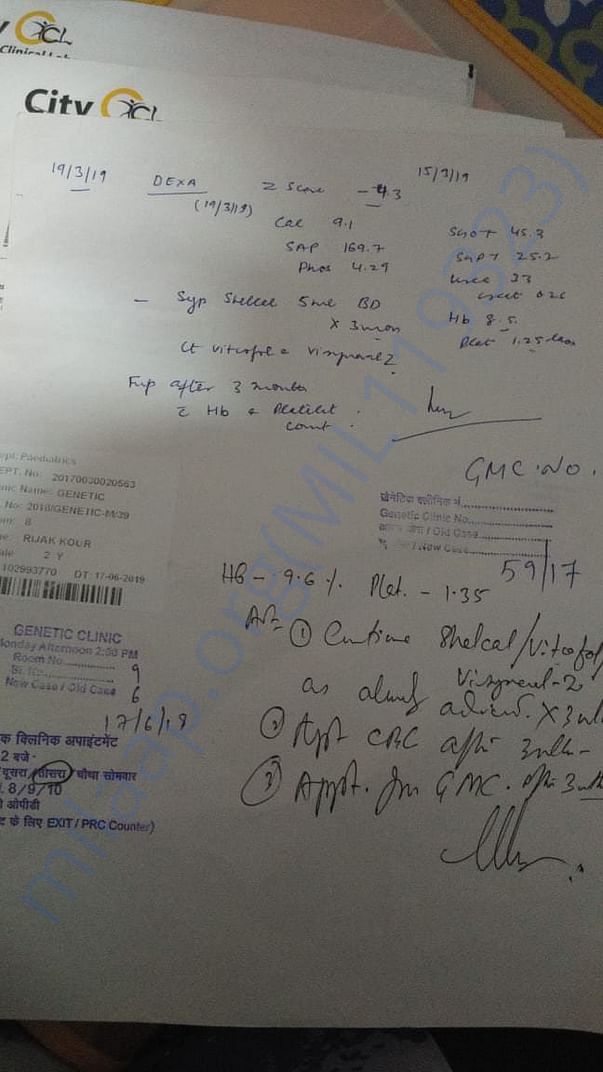 CL
City CL
19/3/19
15/3/19
DEXA Z Score -4.3
(19/3/19)
Cal 9.1
SGOT 45.3
SAP 169.7
SGPT 25.2
Phos 4.29
Urea 33
- Syp Shelcal 5ml BD
Hb 8.5
x 3 mon
Plat 1.25
Ct Vitcofol &
Fup after 3 months
Hb & Platelet
count.
GMC. NO.
ept: Paediatrics
EPT. No: 20170030020563
nic Name: GENETIC
No: 2018/GENETIC-M/39
8
e: RIJAK KOUR
ale 2 Y
102993770 DT: 17-06-2019
जेनेटिक क्लीनिक नं.
Genetic Clinic No.
Old Case
New Case
59/17
Hb - 9.6 %. Plat. - 1.35
GENETIC CLINIC
Monday Afternoon 2:00 PM
Room No. 9
New Case / Old Case 6
17/6/19
① Continue Shelcal/Vitcofol/
as already advised. X 3
② CBC after 3
③ Appt. for GMC. after 3
क क्लिनिक अपाइंटमेंट
2 बजे -
दूसरा/तीसरा/ चौथा सोमवार
8/9/10
ओपीडी
ट के लिए EXIT / PRC Counter)
milaap.org(MIL119323)